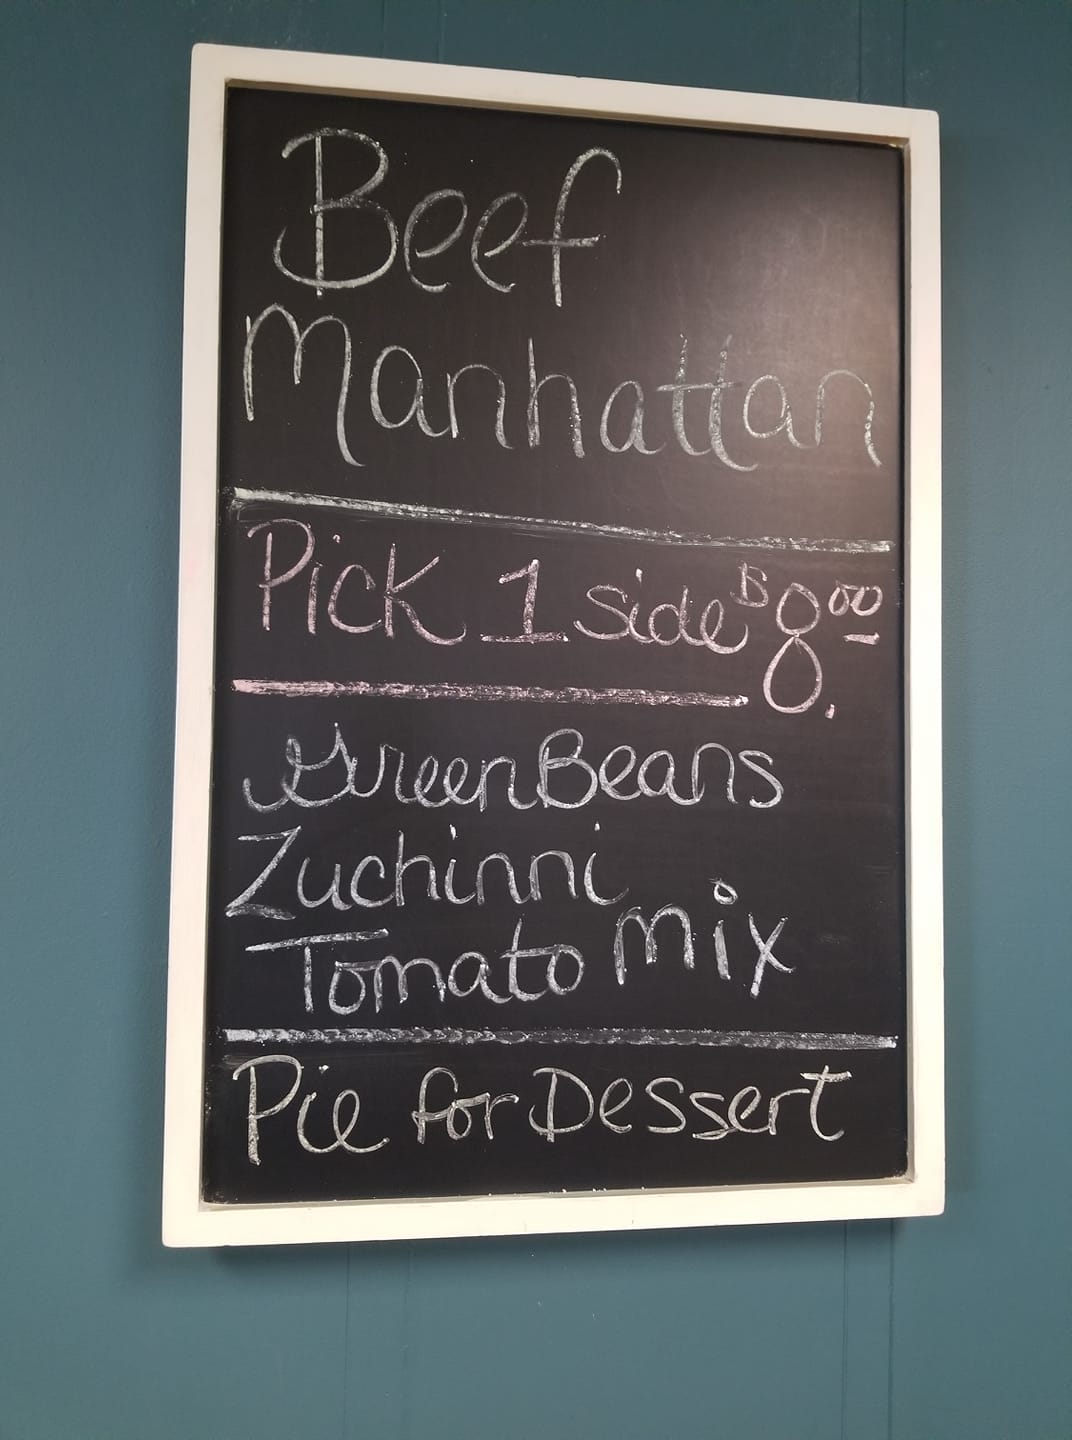 Beef
Manhattan
Pick 1 side $8.00
Green Beans
Zuchinni
Tomato Mix
Pie for Dessert